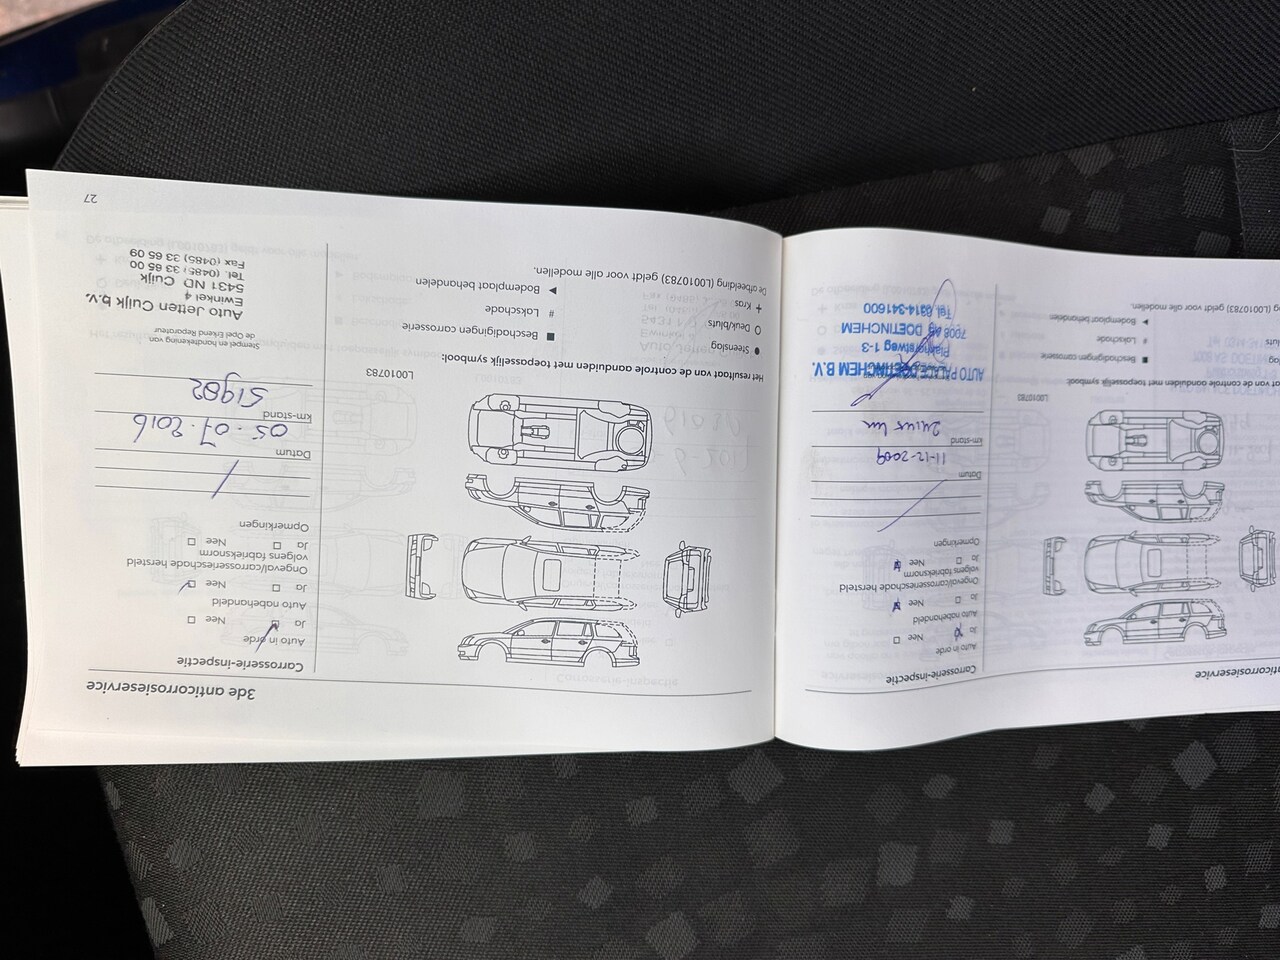 3de anticorrosieservice
Carrosserie-inspectie
Auto in orde
Ja
Nee
Auto nabehandeld
Ja
Nee
Ongeval/carrosserieschade hersteld
volgens fabrieksnorm
Ja
Nee
Opmerkingen
Datum
05.07.2016
km-stand
51982
Stempel en handtekening van
de Opel Erkend Reparateur
Auto Jetten Cuijk b.v.
Ewinkel 4
5431 ND Cuijk
Tel. (0485) 33 65 00
Fax (0485) 33 65 09
L0010783
Het resultaat van de controle aanduiden met toepasselijk symbool:
● Steenslag
O Deuk/bluts
+ Kras
■ Beschadigingen carrosserie
# Lakschade
▶ Bodemplaat behandelen
De afbeelding (L0010783) geldt voor alle modellen.
27
nticorrosieservice
Carrosserie-inspectie
Auto in orde
Ja
Nee
Auto nabehandeld
Ja
Nee
Ongeval/carrosserieschade hersteld
volgens fabrieksnorm
Ja
Nee
Opmerkingen
Datum
11-12-2009
km-stand
AUTO PALACE DOETINCHEM B.V.
Plakhorstweg 1-3
DOETINCHEM
Tel. 0314-341600
L0010783
at van de controle aanduiden met toepasselijk symbool:
■ Beschadigingen carrosserie
# Lakschade
▶ Bodemplaat behandelen
g (L0010783) geldt voor alle modellen.